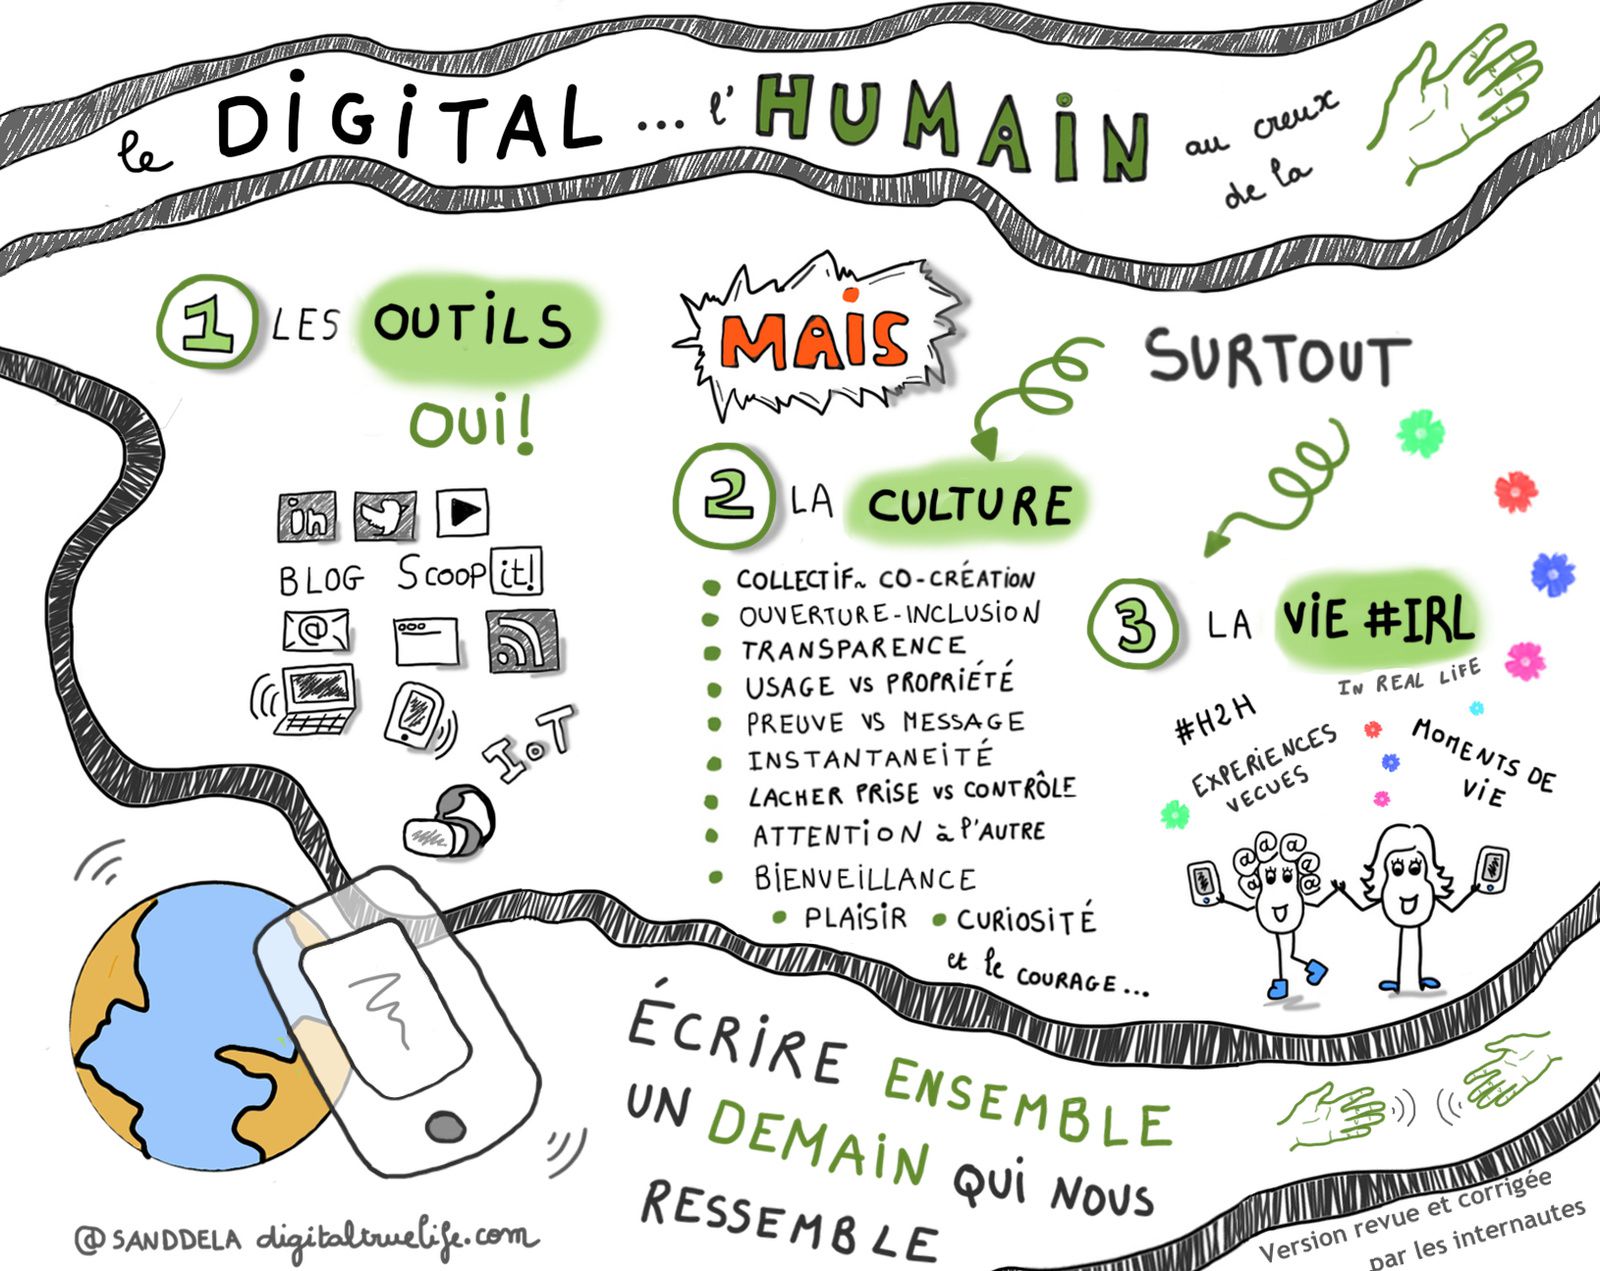 le DIGITAL ... l'HUMAIN au creux
de la
1 LES OUTILS
OUI!
MAIS
SURTOUT
in
BLOG Scoop it!
@
IoT
2 LA CULTURE
COLLECTIF~ CO-CRÉATION
OUVERTURE-INCLUSION
TRANSPARENCE
USAGE VS PROPRIÉTÉ
PREUVE VS MESSAGE
INSTANTANEITÉ
LACHER PRISE VS CONTRÔLE
ATTENTION à l'AUTRE
BIENVEILLANCE
PLAISIR • CURIOSITÉ
et le COURAGE...
3 LA VIE #IRL
IN REAL LIFE
#H2H
EXPERIENCES
VECUES
MOMENTS DE
VIE
@ @ @ @ @ @
ÉCRIRE ENSEMBLE
UN DEMAIN QUI NOUS
RESSEMBLE
@SANDDELA digitaltruelife.com
Version revue et corrigée
par les internautes